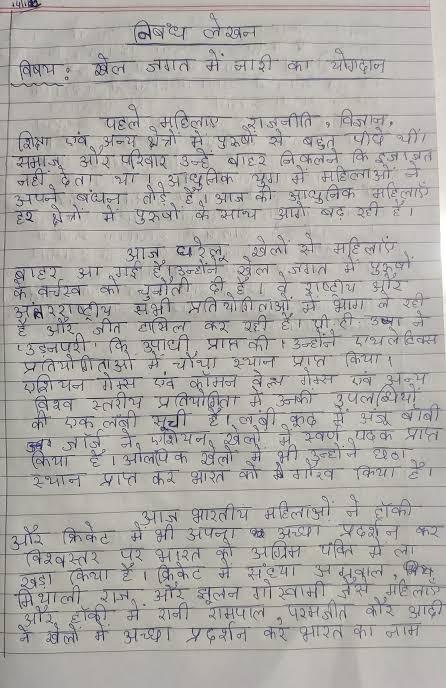 निबंध लेखन
विषय : खेल जगत में नारी का योगदान
पहले महिलाएं राजनीति, विज्ञान,
शिक्षा एवं अन्य क्षेत्रों में पुरुषों से बहुत पीछे थीं।
समाज और परिवार उन्हें बाहर निकलने कि इजाजत
नहीं देता था। आधुनिक युग में महिलाओं ने
अपने बंधना तोड़े हैं। आज की आधुनिक महिलाएं
हर क्षेत्रों में पुरुषों के साथ आगे बढ़ रही हैं।
आज घरेलू खेलों से महिलाएं
बाहर आ गई हैं। उन्होंने खेल जगत में पुरुषों
के वर्चस्व को चुनौती दी हैं। वे राष्ट्रीय और
अंतरराष्ट्रीय सभी प्रतियोगिताओं में भाग ले रही
हैं और जीत हासिल कर रही हैं। पी.टी. उषा ने
'उडनपरी' कि उपाधी प्राप्त की। उन्होंने एथलेटिक्स
प्रतियोगिताओं में चौथा स्थान प्राप्त किया।
एशियन गेम्स एवं कॉमन वेल्थ गेम्स एवं अन्य
विश्व स्तरीय प्रतियोगिता में उनकी उपलब्धियों
की एक लंबी सूची है। लंबी कूद में अंजू बॉबी
जॉर्ज ने एशियन खेलों में स्वर्ण पदक प्राप्त
किया हैं। ओलंपिक खेलों में भी उन्होंने छठा
स्थान प्राप्त कर भारत को गौरव किया हैं।
आज भारतीय महिलाओं ने हॉकी
और क्रिकेट में भी अपना अच्छा प्रदर्शन कर
विश्वस्तर पर भारत को अग्रिम पंक्ति में ला
खड़ा किया हैं। क्रिकेट में संध्या अग्रवाल,
मिथाली राज और झूलन गोस्वामी जैसे महिलाएं
और हॉकी में रानी रामपाल, परमजीत कौर आदी
ने खेलों में अच्छा प्रदर्शन कर भारत का नाम